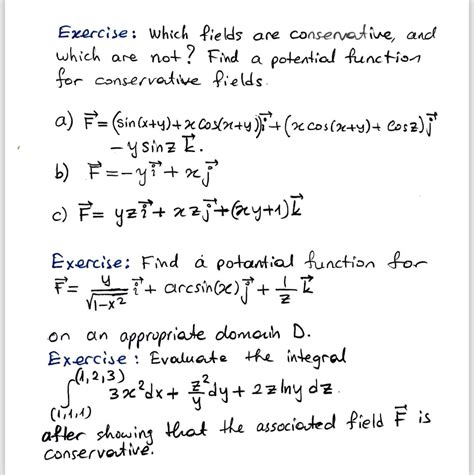 Exercise: Which fields are conservative, and
which are not? Find a potential function
for conservative fields.
a) F⃗ = (sin(x+y)+x cos(x+y))i⃗ + (x cos(x+y)+ cosz)j⃗
- y sinz k⃗.
b) F⃗ = -y i⃗ + x j⃗
c) F⃗ = yz i⃗ + xz j⃗ + (xy+1)k⃗
Exercise: Find a potantial function for
F⃗ = y/√(1-x²) i⃗ + arcsin(x) j⃗ + 1/z k⃗
on an appropriate domain D.
Exercise: Evaluate the integral
∫_(1,1,1)^(1,2,3) 3x² dx + z²/y dy + 2z lny dz.
after showing that the associated field F⃗ is
conservative.